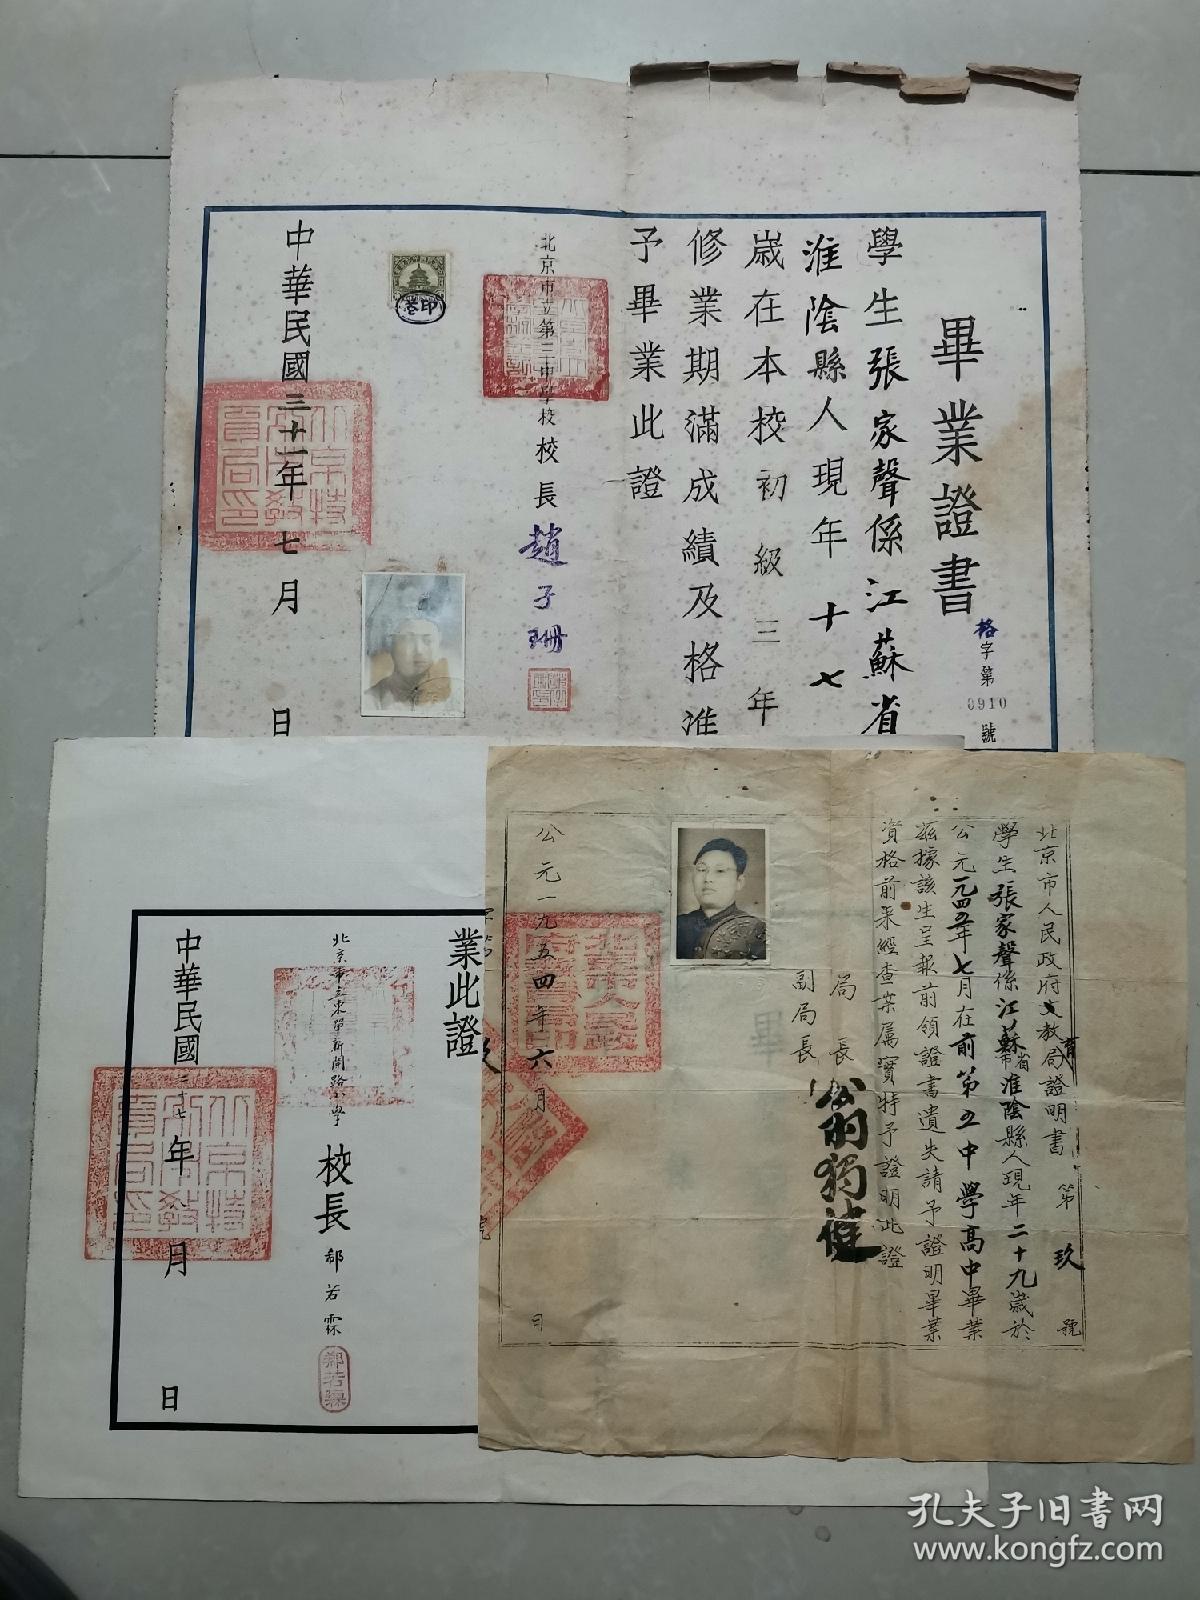 畢業證書
格字第0910號
學生張家聲係江蘇省
淮陰縣人現年十七
歲在本校初級三年
修業期滿成績及格准
予畢業此證
北京市立第三中學校校長趙子珊
中華民國三十一年七月 日
業此證
北京市立東單新開路小學校長郝若霖
中華民國二十七年 月 日
北京市人民政府教育局證明書 第玖號
學生張家聲係江蘇省市淮陰縣人現年二十九歲於
公元一九四五年七月在前第五中學高中畢業
茲據該生呈報前領證書遺失請予證明畢業
資格前來經查案屬實特予證明此證
局長
副局長
翁獨健
公元一九五四年六月 日
孔夫子旧书网
www.kongfz.com